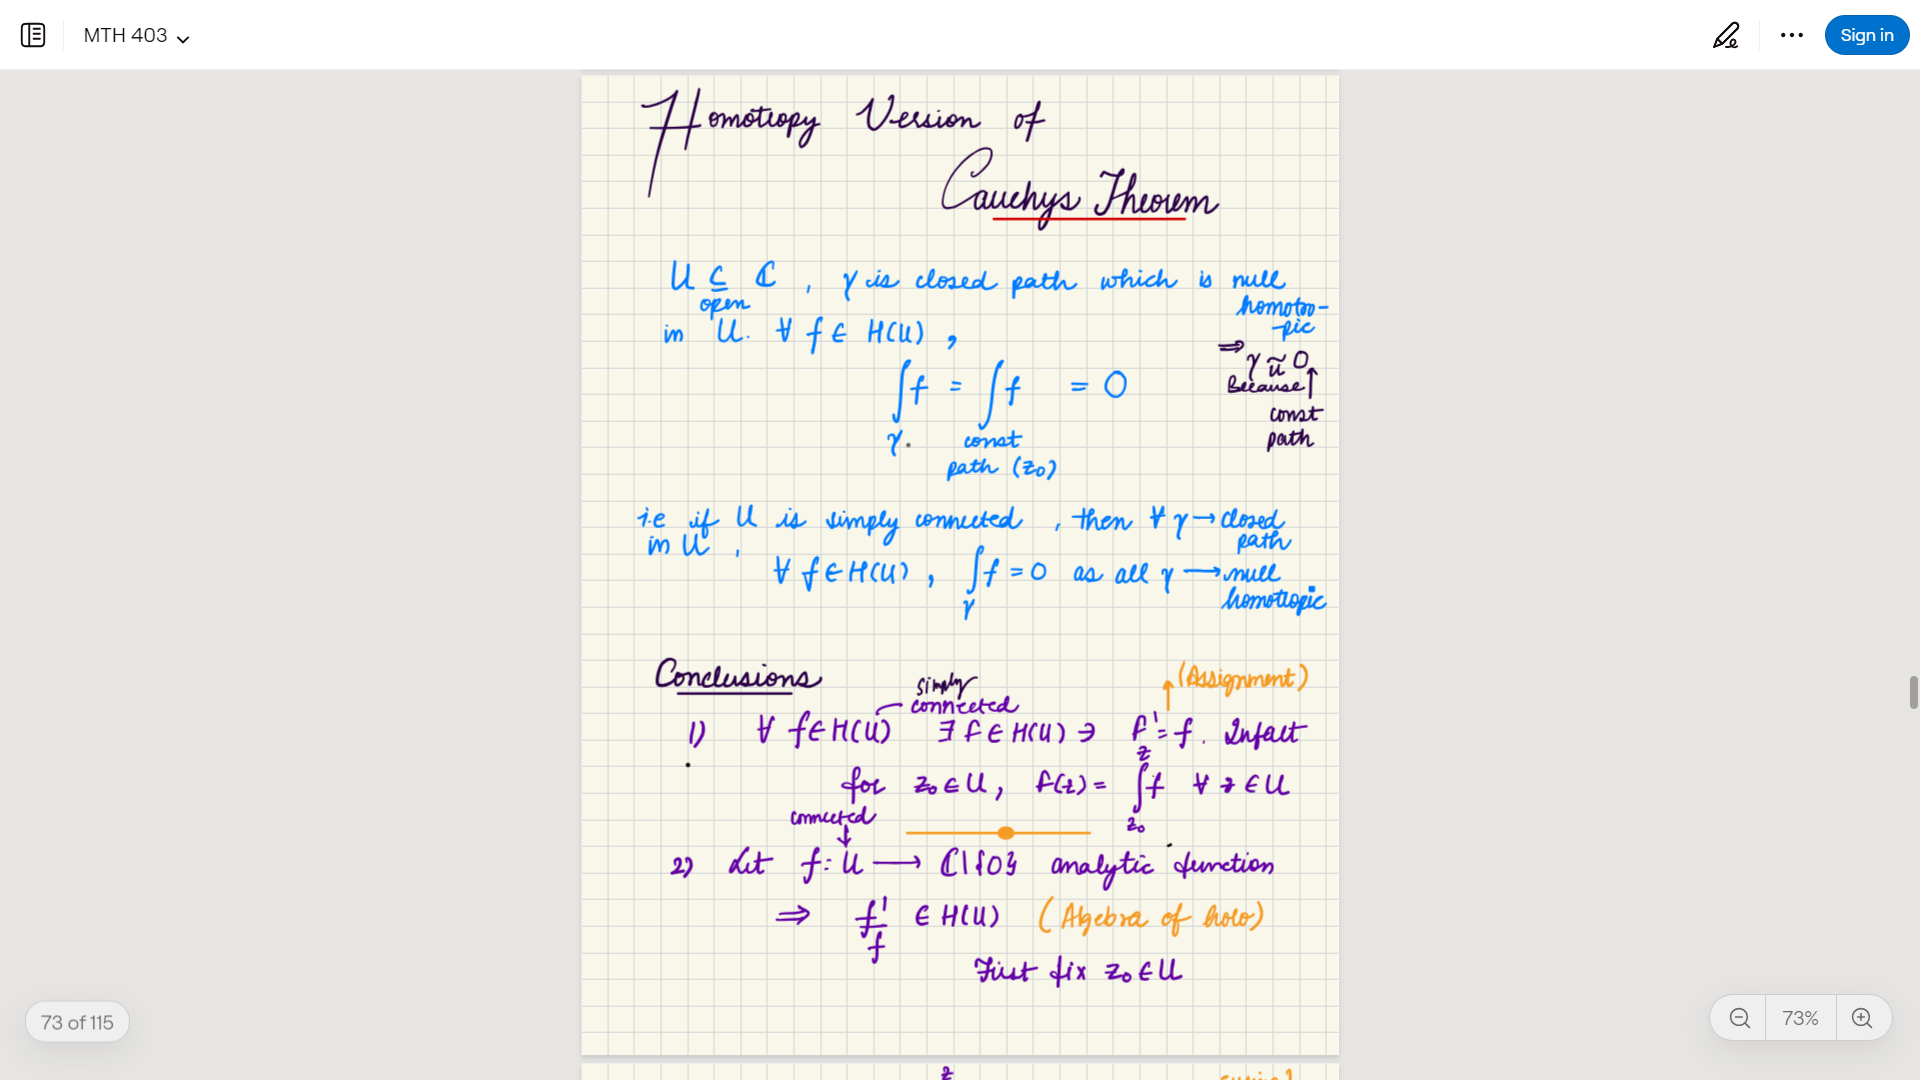 MTH 403
Sign in
Homotopy Version of
Cauchys Theorem
U ⊆ ℂ , γ is closed path which is null
open
homotro-
-pic
in U. ∀ f ∈ H(U) ,
⇒ γ ~ 0
u
Because ↑
const
path
∫f = ∫f = 0
γ. const
path (z₀)
i.e if U is simply connected , then ∀ γ → closed
path
in U ,
∀ f ∈ H(U) , ∫f = 0 as all γ → null
γ
homotopic
Conclusions
simply
connected
(Assignment)
1) ∀ f ∈ H(U) ∃ F ∈ H(U) ∋ F' = f . Infact
for z₀ ∈ U, F(z) = ∫f ∀ z ∈ U
z
z₀
connected
2) Let f: U → ℂ\{0} analytic function
⇒ f'/f ∈ H(U) (Algebra of holo)
First fix z₀ ∈ U
73 of 115
73%
z